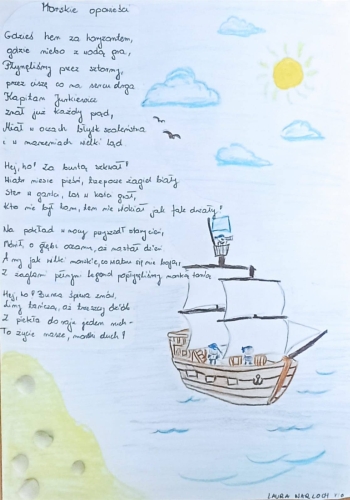 Morskie opowieści
Gdzieś hen za horyzontem,
gdzie niebo z wodą gra,
Płynęliśmy przez sztormy,
przez ciszę co na sercu drga
Kapitan Jurkiewicz
znał już każdy prąd,
Miał w oczach błysk szaleństwa
i w marzeniach wielki ląd
Hej, ho! Za burtą szkwał!
Wiatr niesie pieśń, trzepocze żagiel biały
Ster w garści, los w kości grał,
Kto nie był tam, ten nie widział jak fale
Na pokład nowy
Mówił, o głębi oceanu, aż nastał dzień.
A my jak wilki morskie, co sztormu się nie boją,
Z żaglami pełnymi legend popłynęliśmy morską tonią
Hej, ho! Burza śpiewa znów,
Liny tańczą, aż trzeszczy dziób
Z piekła do raju jeden ruch -
To życie nasze, morski duch!
LAURA NARLOCH